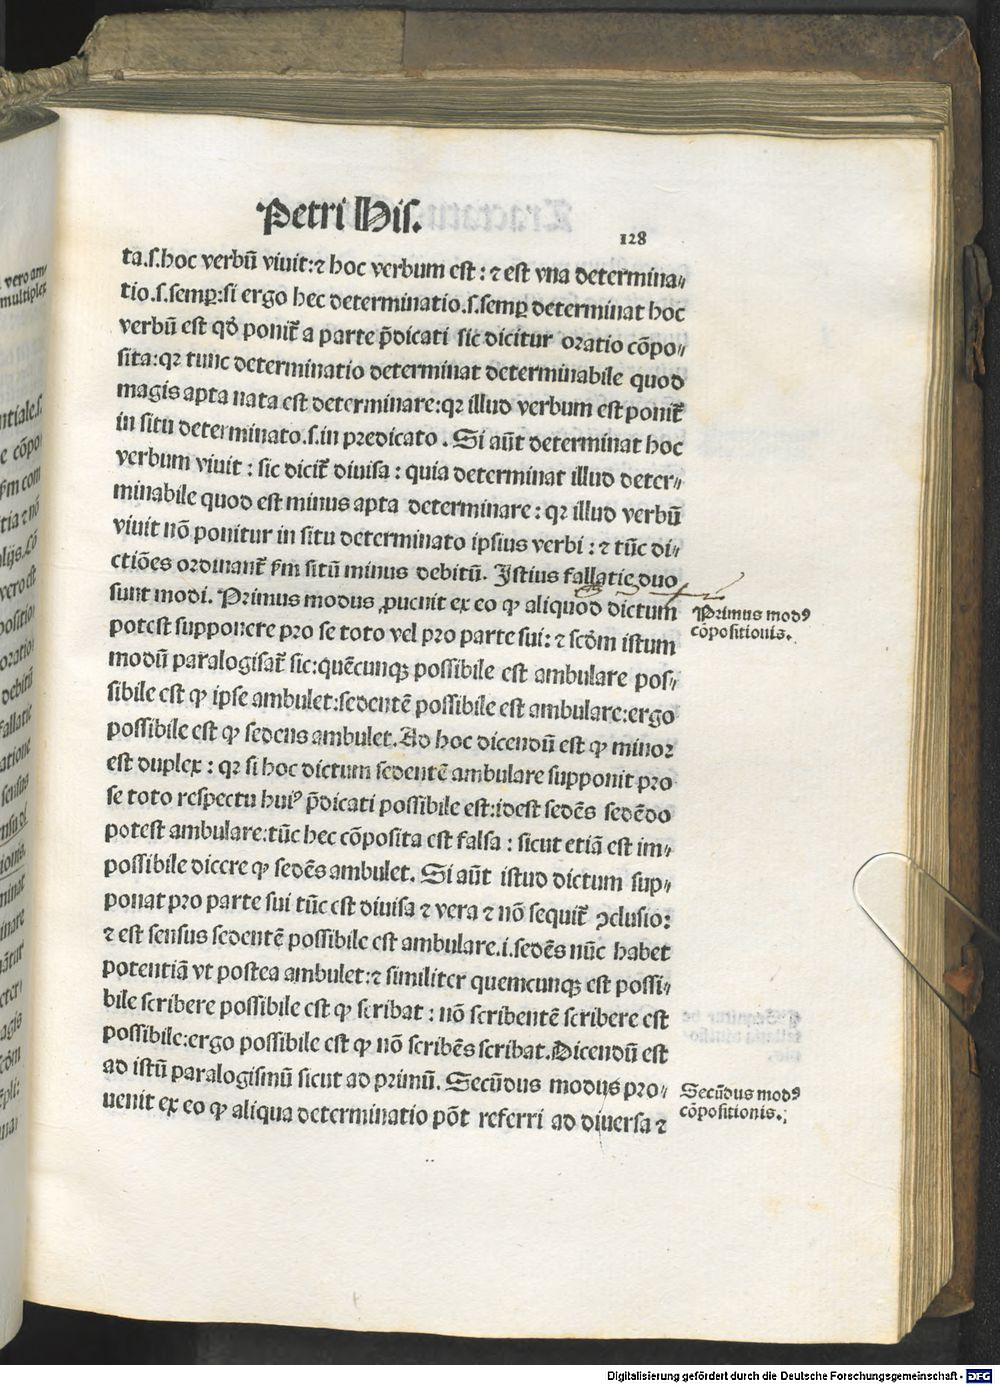 Petri His.
128
ta.s.hoc verbū viuit:⁊ hoc verbum est:⁊ est vna determina⸗
tio.s.semꝑ:si ergo hec determinatio.s.semꝑ determinat hoc
verbū est qđ ponit̄ a parte p̄dicati sic dicitur oratio cōpo⸗
sita:qꝛ tunc determinatio determinat determinabile quod
magis apta nata est determinare:qꝛ illud verbum est ponit̄
in situ determinato.s.in predicato. Si aūt determinat hoc
verbum viuit: sic dicit̄ diuisa: quia determinat illud deter⸗
minabile quod est minus apta determinare: qꝛ illud verbū
viuit nō ponitur in situ determinato ipsius verbi:⁊ tūc di⸗
ctiōes ordinant̄ ẜm sitū minus debitū. Istius fallatie duo
sunt modi. Primus modus ꝓuenit ex eo ꝙ aliquod dictum
potest supponere pro se toto vel pro parte sui:⁊ scđm istum
modū paralogisat̄ sic:quēcunqꝫ possibile est ambulare pos⸗
sibile est ꝙ ipse ambulet:sedentē possibile est ambulare:ergo
possibile est ꝙ sedens ambulet.Ad hoc dicendū est ꝙ minor
est duplex: qꝛ si hoc dictum sedentē ambulare supponit pro
se toto respectu huiꝰ p̄dicati possibile est:idest sedēs sedēdo
potest ambulare:tūc hec cōposita est falsa: sicut etiā est im⸗
possibile dicere ꝙ sedēs ambulet. Si aūt istud dictum sup⸗
ponat pro parte sui tūc est diuisa ⁊ vera ⁊ nō sequit̄ ꝯclusio:
⁊ est sensus sedentē possibile est ambulare.i.sedēs nūc habet
potentiā vt postea ambulet:⁊ similiter quemcunqꝫ est possi⸗
bile scribere possibile est ꝙ scribat: nō scribentē scribere est
possibile:ergo possibile est ꝙ nō scribēs scribat.Dicendū est
ad istū paralogismū sicut ad primū. Secūdus modus pro⸗
uenit ex eo ꝙ aliqua determinatio pōt referri ad diuersa ⁊
Primus modꝰ
cōpositionis.
Secūdus modꝰ
cōpositionis.
Digitalisierung gefördert durch die Deutsche Forschungsgemeinschaft - DFG